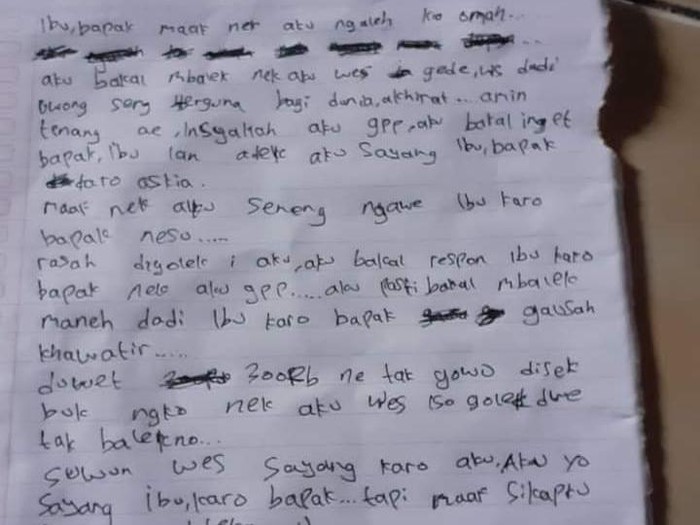 Ibu, bapak maaf nek aku ngaleh ko omah...
aku bakal mbalek nek aku wes gede, ws dadi
owong seng berguna bagi dunia, akhirat... amin
tenang ae, Insyallah aku gpp, aku bakal inget
bapak, Ibu lan adekk aku Sayang Ibu, bapak
karo askia.
maaf nek aku seneng ngawe Ibu karo
bapak nesu.....
rasah digolek i aku, aku bakal respon Ibu karo
bapak nek aku gpp..... aku pasti bakal mbalek
maneh dadi Ibu karo bapak gausah
khawatir.....
duwet 300Rb ne tak gowo disek
buk ngko nek aku wes iso golek dwe
tak balekno...
suwun wes Sayang karo aku, Aku yo
Sayang ibu, karo bapak... tapi maaf sikapku